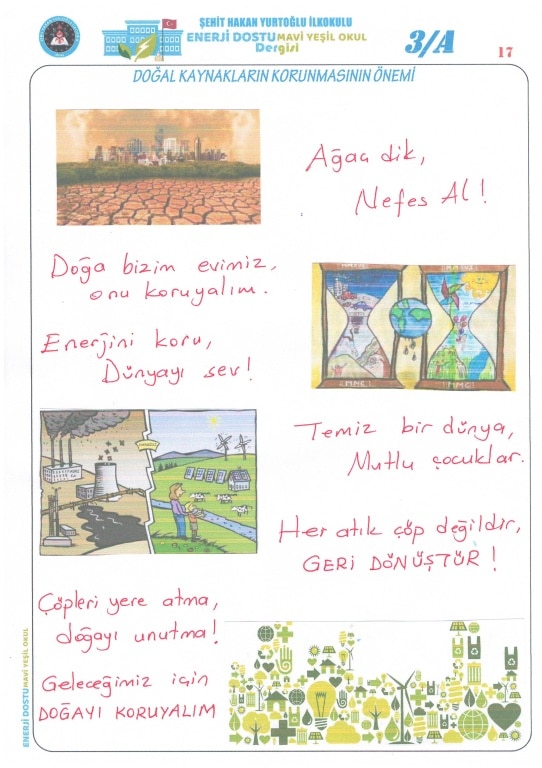 ŞEHİT HAKAN YURTOĞLU İLKOKULU
ENERJİ DOSTU MAVİ YEŞİL OKUL
Dergisi
3/A
17
DOĞAL KAYNAKLARIN KORUNMASININ ÖNEMİ
Ağacı dik,
Nefes Al!
Doğa bizim evimiz,
onu koruyalım.
Enerjini koru,
Dünyayı sev!
Temiz bir dünya,
Mutlu çocuklar.
Her atık çöp değildir,
GERİ DÖNÜŞTÜR!
Çöpleri yere atma,
doğayı unutma!
Geleceğimiz için
DOĞAYI KORUYALIM
ENERJİ DOSTU MAVİ YEŞİL OKUL